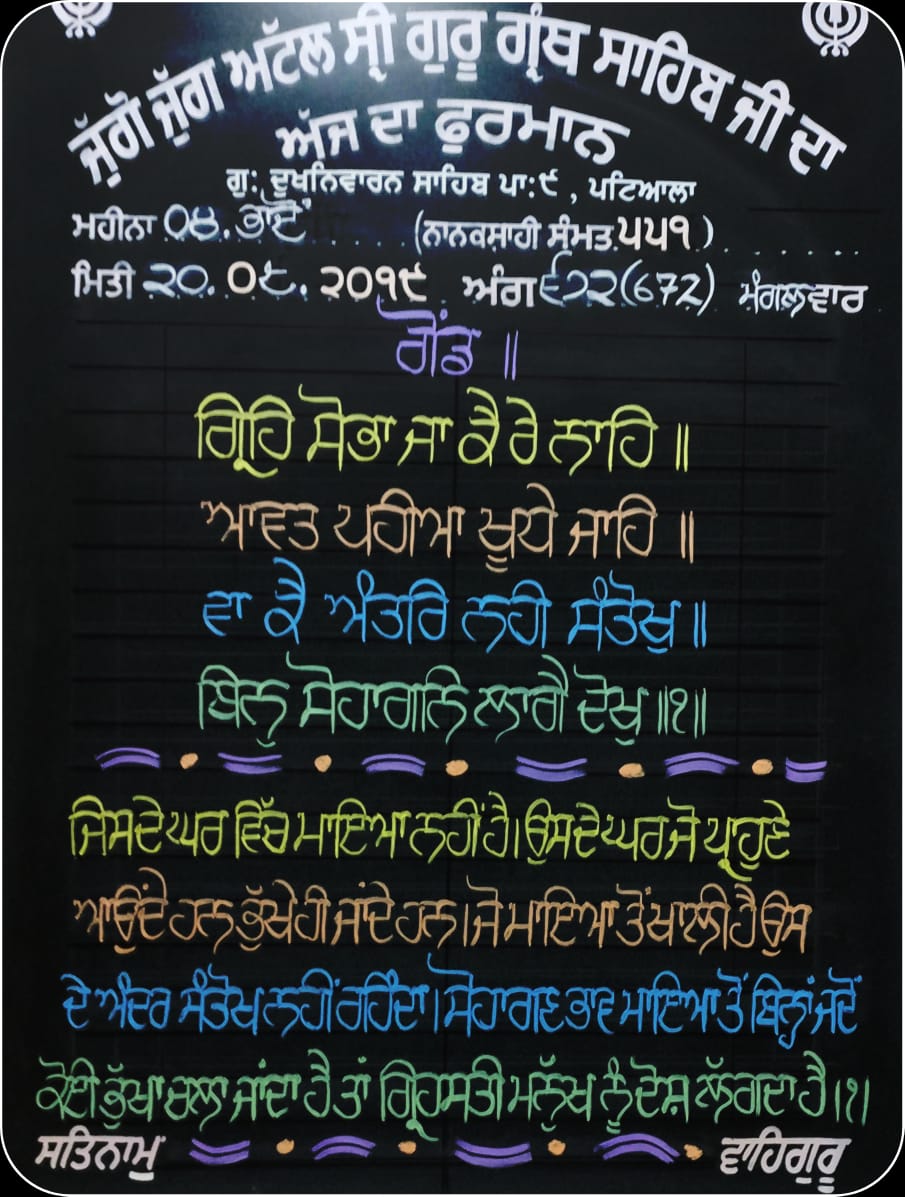 ਜੁੱਗੋ ਜੁੱਗ ਅੱਟਲ ਸ੍ਰੀ ਗੁਰੂ ਗ੍ਰੰਥ ਸਾਹਿਬ ਜੀ ਦਾ
ਅੱਜ ਦਾ ਫੁਰਮਾਨ
ਗੁ: ਦੂਖਨਿਵਾਰਨ ਸਾਹਿਬ ਪਾ:੯ , ਪਟਿਆਲਾ
ਮਹੀਨਾ ੦੪.ਭਾਦੋਂ ..... (ਨਾਨਕਸਾਹੀ ਸੰਮਤ.੫੫੧ ) ......
ਮਿਤੀ ੨੦. ੦੮. ੨੦੧੯ ਅੰਗ ੬੭੨(672) ਮੰਗਲਵਾਰ
ਗੋਂਡ ॥
ਗ੍ਰਿਹਿ ਸੋਭਾ ਜਾ ਕੈ ਰੇ ਨਾਹਿ ॥
ਆਵਤ ਪਹੀਆ ਖੂਧੇ ਜਾਹਿ ॥
ਵਾ ਕੈ ਅੰਤਰਿ ਨਹੀ ਸੰਤੋਖੁ ॥
ਬਿਨੁ ਸੋਹਾਗਨਿ ਲਾਗੈ ਦੋਖੁ ॥੧॥
ਜਿਸ ਦੇ ਘਰ ਵਿੱਚ ਮਾਇਆ ਨਹੀਂ ਹੈ। ਉਸ ਦੇ ਘਰ ਜੋ ਪ੍ਰਾਹੁਣੇ
ਆਉਂਦੇ ਹਨ ਭੁੱਖੇ ਹੀ ਜਾਂਦੇ ਹਨ। ਜੋ ਮਾਇਆ ਤੋਂ ਖਾਲੀ ਹੈ ਉਸ
ਦੇ ਅੰਦਰ ਸੰਤੋਖ ਨਹੀਂ ਰਹਿੰਦਾ। ਸੋਹਾਗਣ ਭਾਵ ਮਾਇਆ ਤੋਂ ਬਿਨ੍ਹਾਂ ਜਦੋਂ
ਕੋਈ ਭੁੱਖਾ ਚਲਾ ਜਾਂਦਾ ਹੈ ਤਾਂ ਗ੍ਰਿਹਸਤੀ ਮਨੁੱਖ ਨੂੰ ਦੋਸ਼ ਲੱਗਦਾ ਹੈ।੧।
ਸਤਿਨਾਮੁ ਵਾਹਿਗੁਰੂ